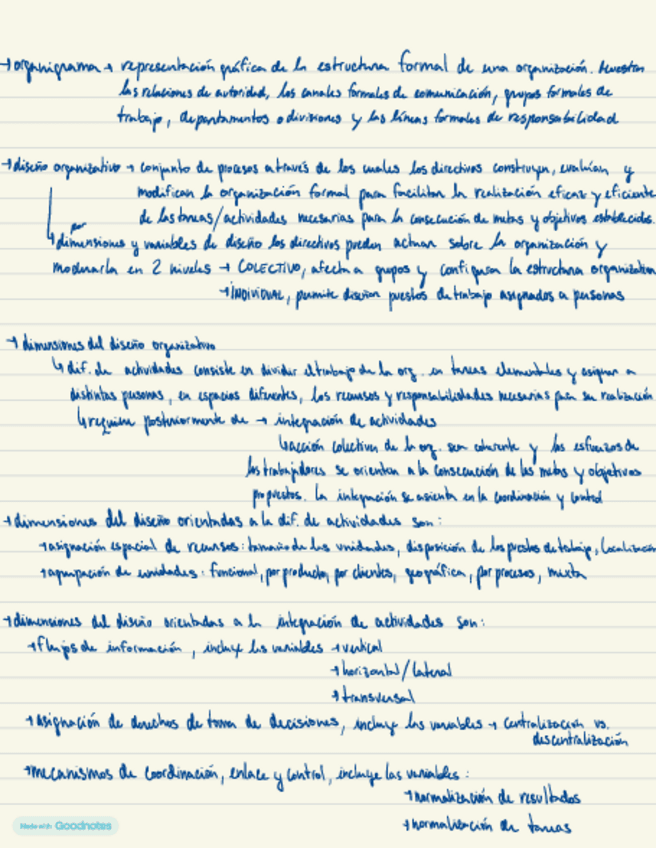 →organigrama → representación gráfica de la estructura formal de una organización. Muestra
las relaciones de autoridad, los canales formales de comunicación, grupos formales de
trabajo, departamentos o divisiones y las líneas formales de responsabilidad
→diseño organizativo → conjunto de procesos a través de los cuales los directivos construyen, evalúan y
modifican la organización formal para facilitar la realización eficaz y eficiente
de las tareas/actividades necesarias para la consecución de metas y objetivos establecidos.
por
↳dimensiones y variables de diseño los directivos pueden actuar sobre la organización y
moderarla en 2 niveles → COLECTIVO, afecta a grupos y configura la estructura organizativa
→INDIVIDUAL, permite diseñar puestos de trabajo asignados a personas
→ dimensiones del diseño organizativo
↳ dif. de actividades consiste en dividir el trabajo de la org. en tareas elementales y asignar a
distintas personas, en espacios diferentes, los recursos y responsabilidades necesarias para su realización
↳requiere posteriormente de → integración de actividades
↳acción colectiva de la org. sea coherente y los esfuerzos de
los trabajadores se orienten a la consecución de las metas y objetivos
propuestos. La integración se asienta en la coordinación y control
→dimensiones del diseño orientadas a la dif. de actividades son:
→asignación espacial de recursos: tamaño de las unidades, disposición de los puestos de trabajo, localización
→agrupación de unidades: funcional, por producto, por clientes, geográfica, por procesos, mixta
→dimensiones del diseño orientadas a la integración de actividades son:
→flujos de información, incluye las variables →vertical
→horizontal/lateral
→transversal
→asignación de derechos de toma de decisiones, incluye las variables → centralización vs.
descentralización
→mecanismos de coordinación, enlace y control, incluye las variables:
→normalización de resultados
→normalización de tareas
Made with Goodnotes